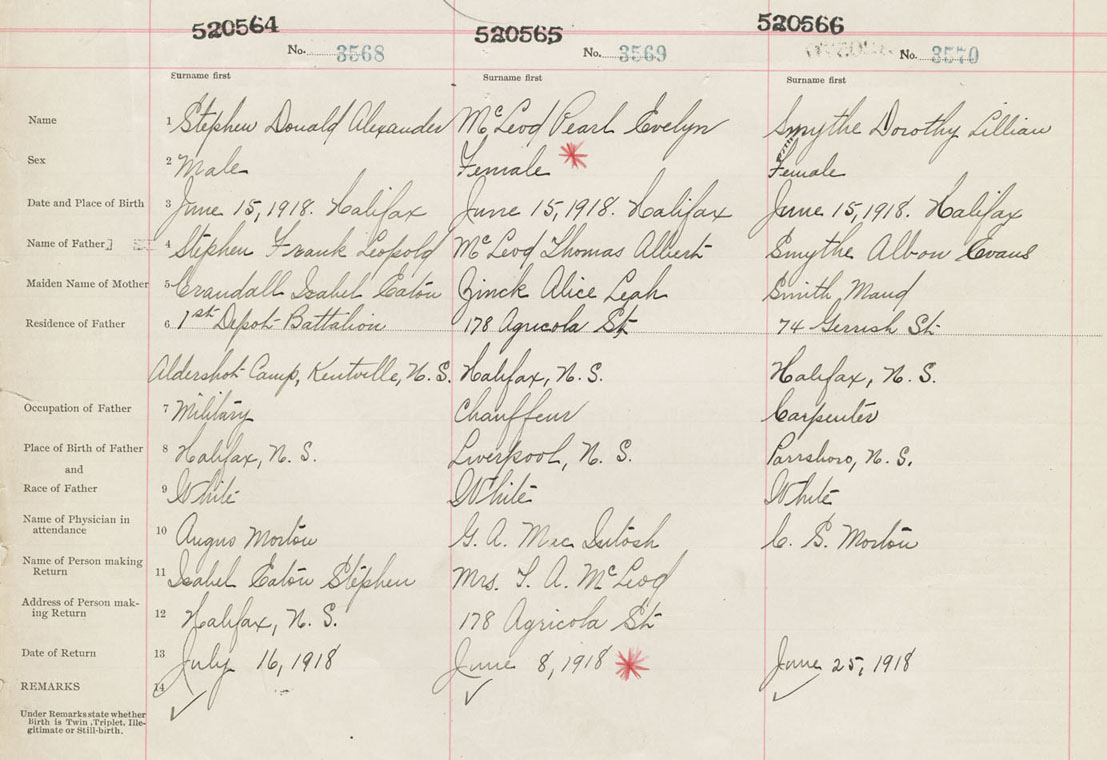 520564 520565 520566
No. 3568 No. 3569 No. 3570
Surname first Surname first Surname first
Name 1 Stephen Donald Alexander McLeod Pearl Evelyn Smythe Dorothy Lillian
Sex 2 Male Female Female
Date and Place of Birth 3 June 15, 1918. Halifax June 15, 1918. Halifax June 15, 1918. Halifax
Name of Father 4 Stephen Frank Leopold McLeod Thomas Albert Smythe Albon Evans
Maiden Name of Mother 5 Crandall Isabel Eaton Zinck Alice Leah Smith Maud
Residence of Father 6 1st Depot Battalion 178 Agricola St. 74 Gerrish St.
Aldershot Camp, Kentville, N.S. Halifax, N.S. Halifax, N.S.
Occupation of Father 7 Military Chauffeur Carpenter
Place of Birth of Father 8 Halifax, N.S. Liverpool, N.S. Parrsboro, N.S.
and
Race of Father 9 White White White
Name of Physician in
attendance 10 Angus Morton G. A. MacIntosh C. S. Morton
Name of Person making
Return 11 Isabel Eaton Stephen Mrs. T. A. McLeod
Address of Person mak-
ing Return 12 Halifax, N.S. 178 Agricola St.
Date of Return 13 July 16, 1918 June 8, 1918 June 25, 1918
REMARKS 14
Under Remarks state whether
Birth is Twin, Triplet, Ille-
gitimate or Still-birth.